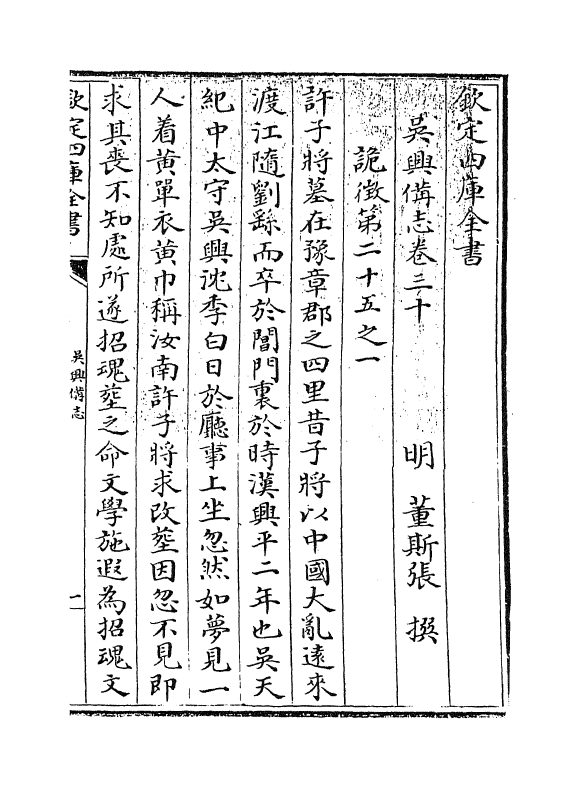 欽定四庫全書
吳興備志卷三十
明 董斯張 撰
詭徵第二十五之一
許子將墓在豫章郡之四里昔子將以中國大亂逺來
渡江隨劉繇而卒於閶門裏於時漢興平二年也吳天
紀中太守吳興沈季白日於廳事上坐忽然如夢見一
人着黄單衣黄巾稱汝南許子將求改塟因忽不見即
求其喪不知處所遂招魂塟之命文學施遐為招魂文
欽定四庫全書
吳興備志
一